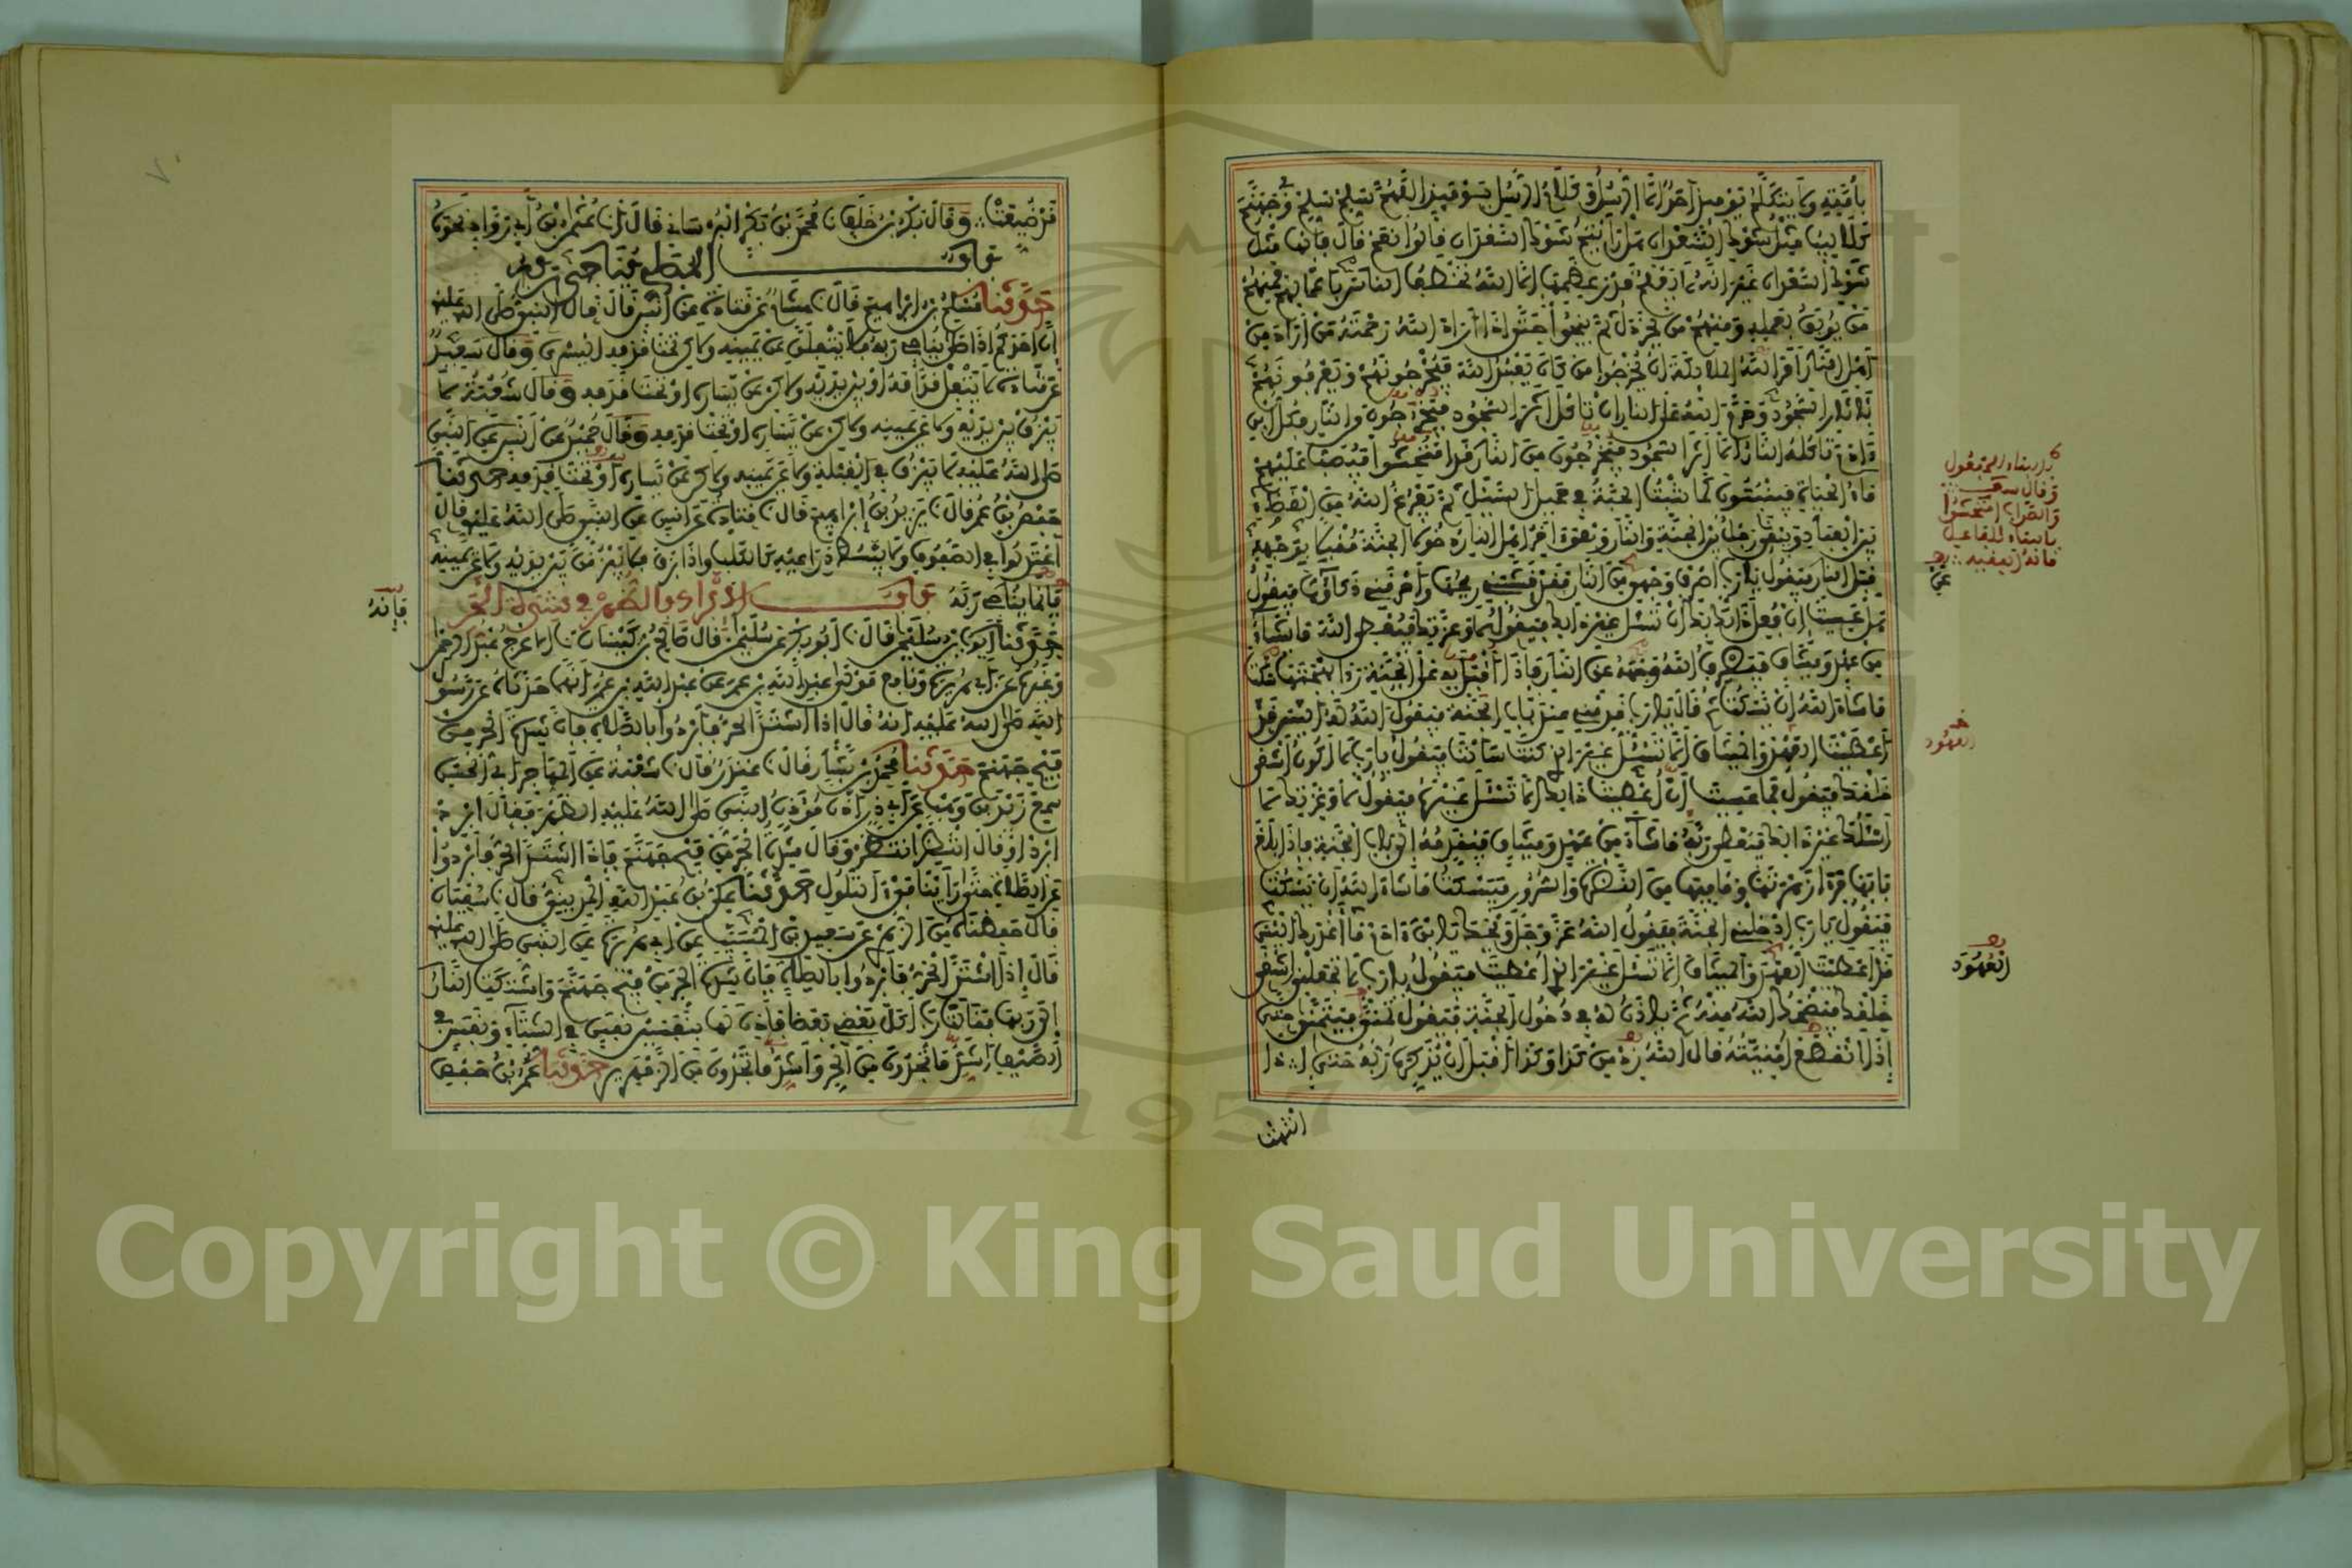 بأمته ولا يتكلم يومئذ أحد إلا الرسل وكلام الرسل يومئذ اللهم سلم سلم وفي جهنم
كلاليب مثل شوك السعدان هل رأيتم شوك السعدان قالوا نعم قال فإنها مثل
شوك السعدان غير أنه لا يعلم قدر عظمها إلا الله تخطف الناس بأعمالهم فمنهم
من يوبق بعمله ومنهم من يخردل ثم ينجوا حتى إذا أراد الله رحمة من أراد من
أهل النار أمر الله الملائكة أن يخرجوا من كان يعبد الله فيخرجونهم ويعرفونهم
بآثار السجود وحرم الله على النار أن تأكل أثر السجود فيخرجون من النار فكل ابن
ءادم تأكله النار إلا أثر السجود فيخرجون من النار قد امتحشوا فيصب عليهم
ماء الحياة فينبتون كما تنبت الحبة في حميل السيل ثم يفرغ الله من القضاء
بين العباد ويبقى رجل بين الجنة والنار وهو آخر أهل النار دخولا الجنة مقبلا بوجهه
قبل النار فيقول يا رب اصرف وجهي من النار فقد قشبني ريحها وأحرقني ذكاؤها فيقول
هل عسيت إن فعل ذلك بك أن تسئل غير ذلك فيقول لا وعزتك فيعطي الله ما شاء
من عهد وميثاق فيصرف الله وجهه عن النار فإذا أقبل به على الجنة رأى بهجتها سكت
ما شاء الله أن يسكت ثم قال يا رب قدمني عند باب الجنة فيقول الله له أليس قد
أعطيت العهد والميثاق ألا تسئل غير الذي كنت سألت فيقول يا رب لا أكون أشقى
خلقك فيقول فما عسيت إن أعطيت ذلك ألا تسئل غيره فيقول لا وعزتك لا
أسئلك غير ذلك فيعطي ربه ما شاء من عهد وميثاق فيقدمه إلى باب الجنة فإذا بلغ
بابها فرأى زهرتها وما فيها من النضرة والسرور فيسكت ما شاء الله أن يسكت
فيقول يا رب أدخلني الجنة فيقول الله عز وجل ويحك يا ابن ءادم ما أغدرك أليس
قد أعطيت العهد والميثاق ألا تسئل غير الذي أعطيت فيقول يا رب لا تجعلني أشقى
خلقك فيضحك الله منه ثم يأذن له في دخول الجنة فيقول تمن فيتمنى حتى
إذا انقطع أمنيته قال الله زد من كذا وكذا أقبل يذكره ربه حتى إذا
انتهت
عن
العهود
العهود
فرضيعتا وقال بكر بن خلف نا محمد بن بكر البرساني قال انا عثمان بن أبي رواد نحوه
باب المصلي يناجي ربه
حدثنا مسلم بن إبراهيم قال نا هشام عن قتادة عن أنس قال قال النبي صلى الله عليه
إن أحدكم إذا صلى يناجي ربه فلا يتفلن عن يمينه ولكن تحت قدمه اليسرى وقال سعيد
عن قتادة لا يتفل قدامه أو بين يديه ولكن عن يساره أو تحت قدمه وقال شعبة لا
يبزق بين يديه ولا عن يمينه ولكن عن يساره أو تحت قدمه وقال حميد عن أنس عن النبي
صلى الله عليه لا يبزق في القبلة ولا عن يمينه ولكن عن يساره أو تحت قدمه حدثنا
حفص بن عمر قال نا يزيد بن إبراهيم قال نا قتادة عن أنس عن النبي صلى الله عليه قال
اعتدلوا في السجود ولا يبسط ذراعيه كالكلب وإذا بزق فلا يبزقن بين يديه ولا عن يمينه
فإنما يناجي ربه باب الإبراد بالظهر في شدة الحر
فإنه
حدثنا أيوب بن سليمن قال نا أبو بكر عن سليمن قال صالح بن كيسان نا الأعرج عبد الرحمن
وغيره عن أبي هريرة ونافع مولى عبد الله بن عمر عن عبد الله بن عمر أنهما حدثاه عن رسول
الله صلى الله عليه أنه قال إذا اشتد الحر فأبردوا بالصلاة فإن شدة الحر من
فيح جهنم حدثنا محمد بن بشار قال نا غندر قال نا شعبة عن المهاجر أبي الحسن
سمع زيد بن وهب عن أبي ذر أذن مؤذن النبي صلى الله عليه الظهر فقال أبرد
أبرد أو قال انتظر انتظر وقال شدة الحر من فيح جهنم فإذا اشتد الحر فأبردوا
عن الصلاة حتى رأينا فيء التلول حدثنا علي بن عبد الله المديني قال نا سفيان
قال حفظناه من الزهري عن سعيد بن المسيب عن أبي هريرة عن النبي صلى الله عليه
قال إذا اشتد الحر فأبردوا بالصلاة فإن شدة الحر من فيح جهنم واشتكت النار
إلى ربها فقالت يا رب أكل بعضي بعضا فأذن لها بنفسين نفس في الشتاء ونفس في
الصيف أشد ما تجدون من الحر وأشد ما تجدون من الزمهرير حدثنا عمر بن حفص
Copyright © King Saud University
1957